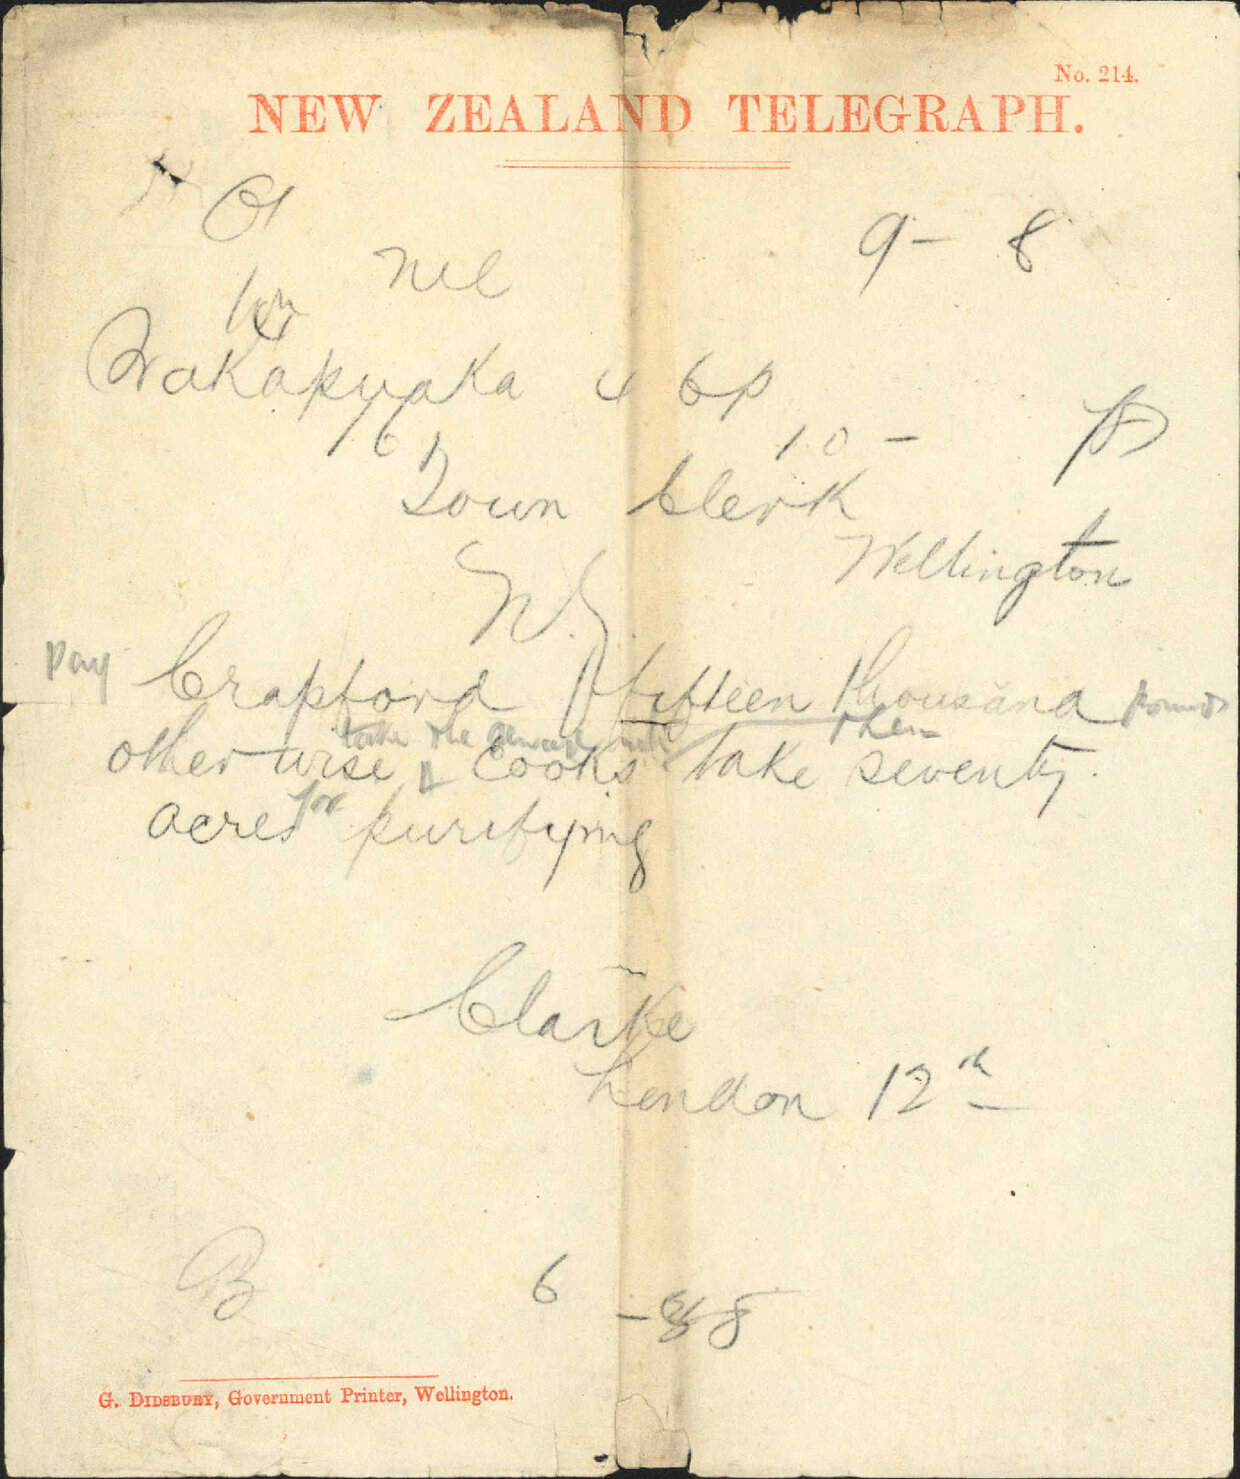 No. 214.
NEW ZEALAND TELEGRAPH.
9 - 8
Nel
Wakapuaka 4 6p
10 -
Town Clerk
Wellington
N.Z.
pay Crapford fifteen thousand pounds
take the sewage then
otherwise Cooks take seventy
acres for purifying
Clarke
London 12th
B 6 - 8
G. DIDSBURY, Government Printer, Wellington.